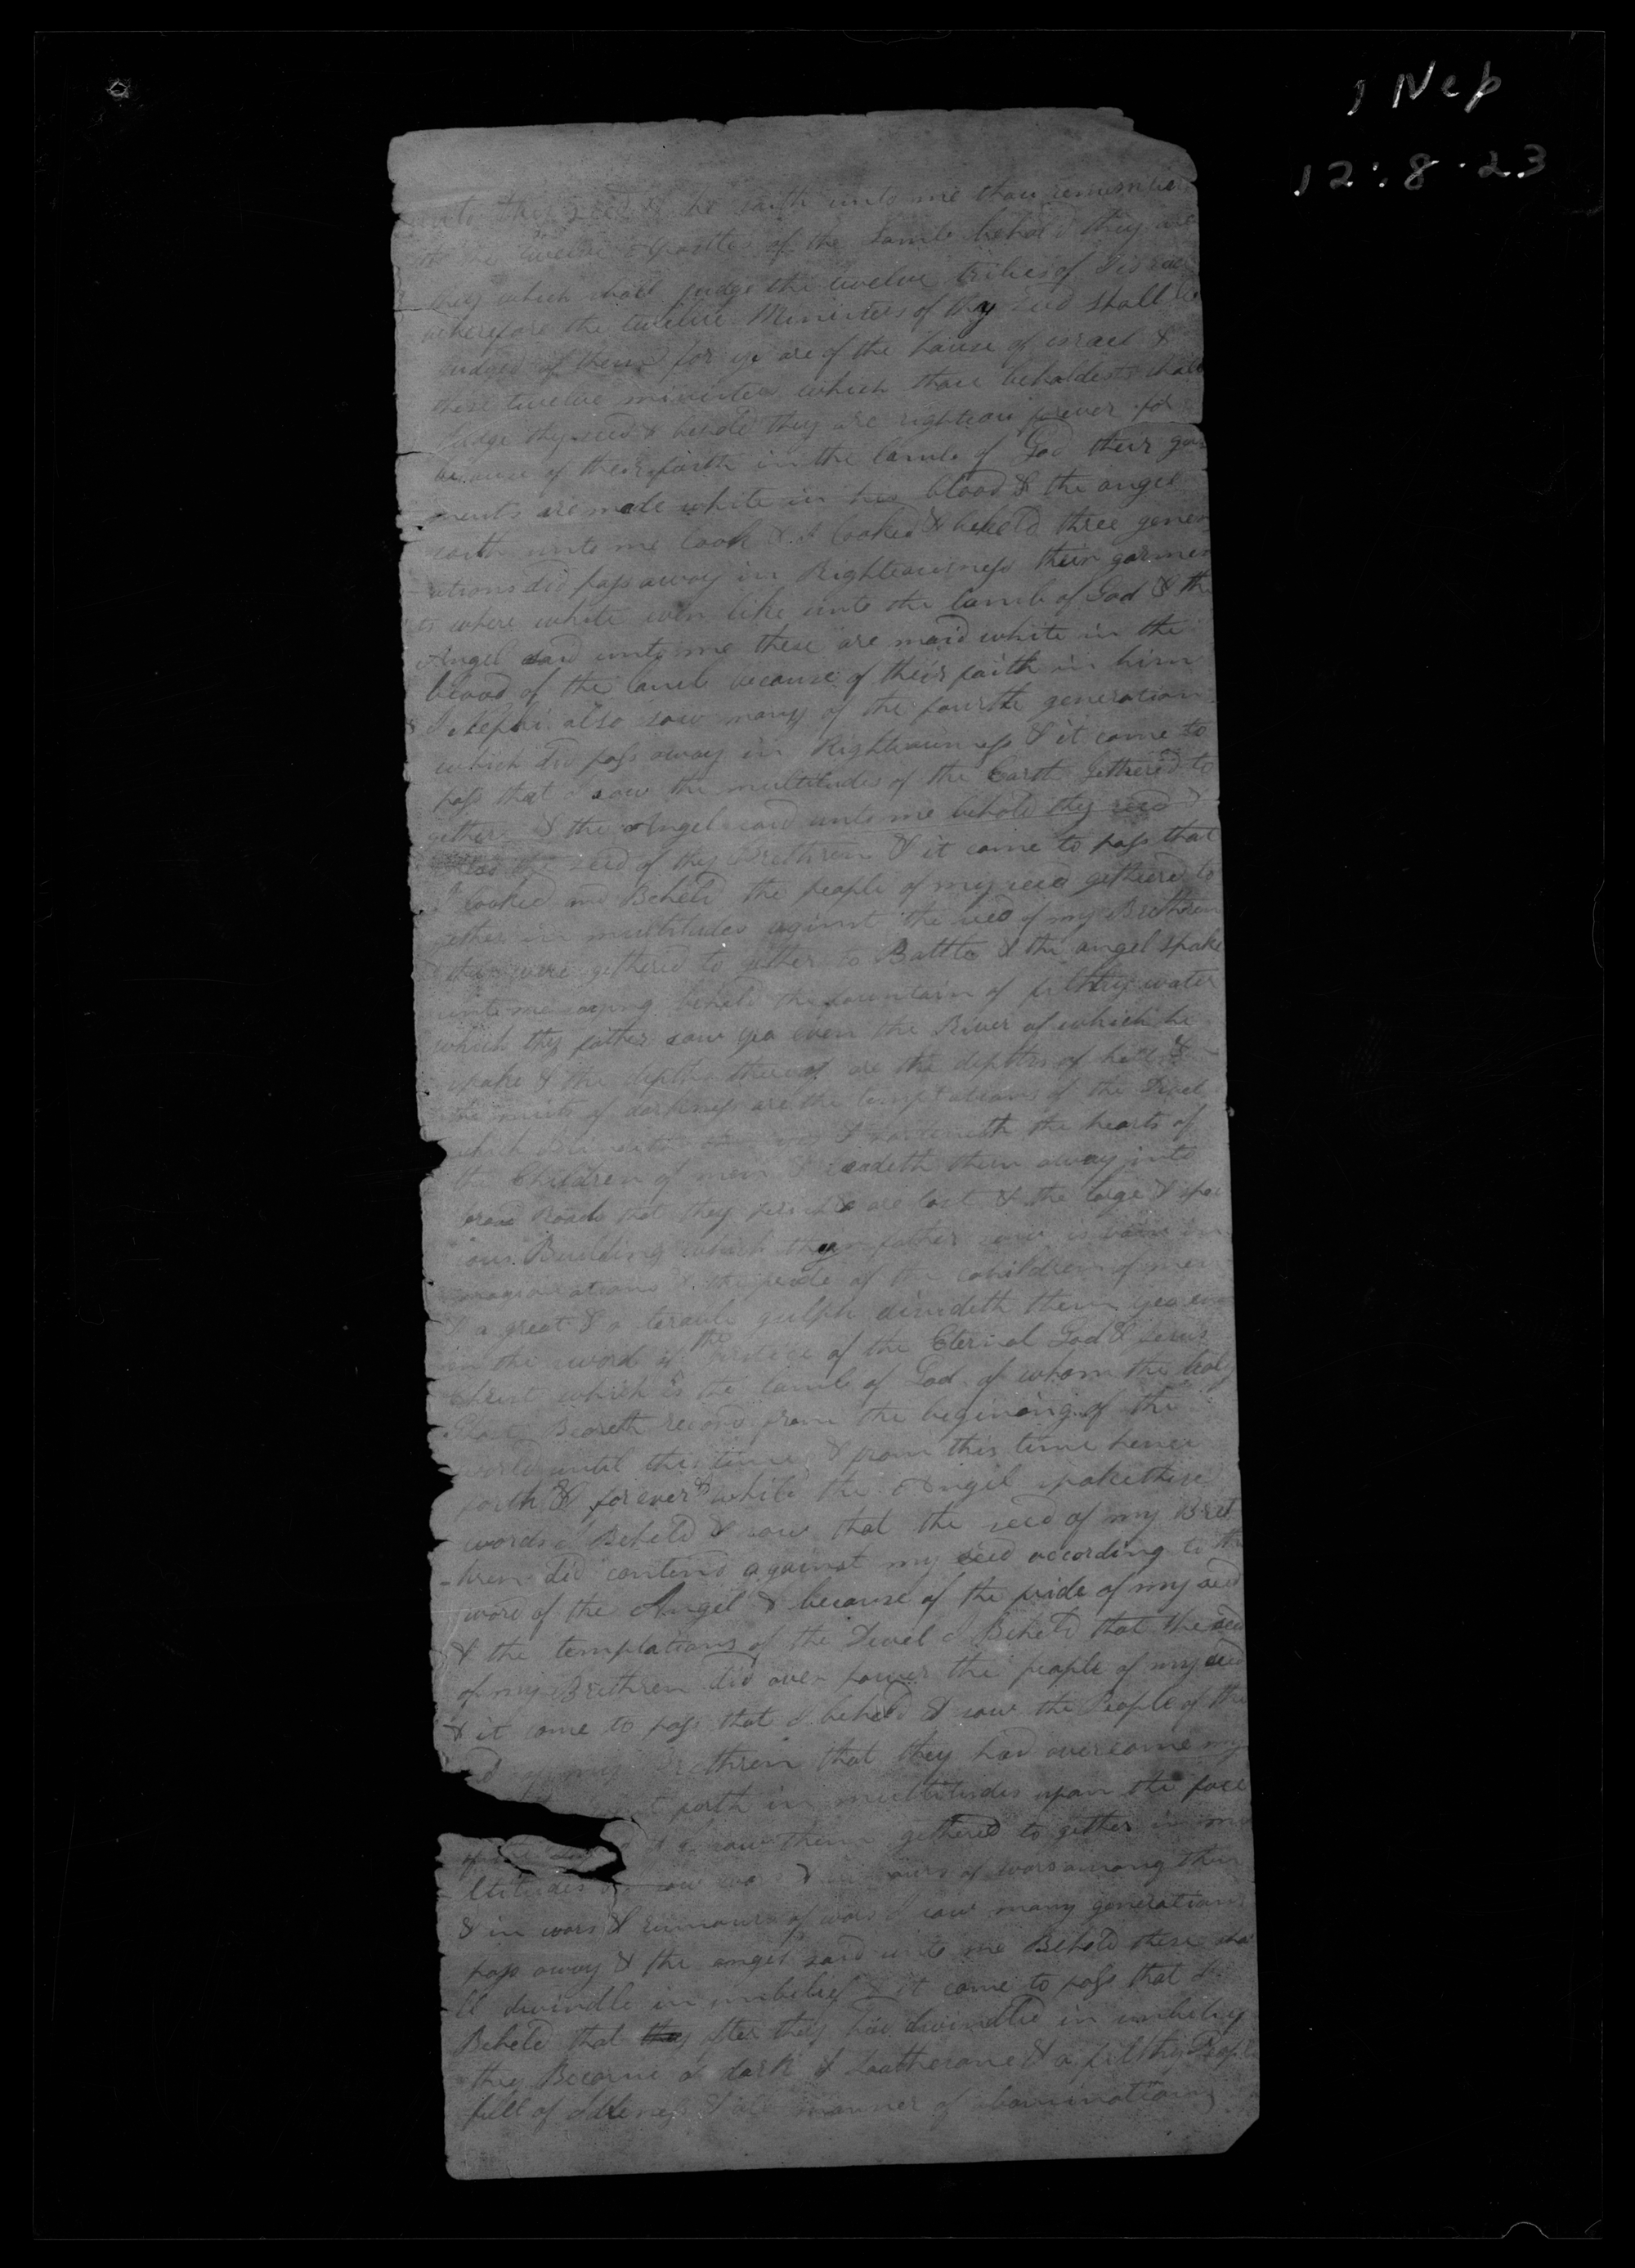 1 Nep
12:8-23
unto thy seed & he saith unto me thou remember
the twelve apostles of the Lamb behold they are
they which shall judge the twelve tribes of Israel
wherefore the twelve Ministers of thy seed shall be
Judged of them for ye are of the house of israel &
these twelve ministers which thou beholdest shall
Judge thy seed & behold they are righteous forever for
because of their faith in the lamb of God their gar
ments are made white in his blood & the angel
saith unto me look & I looked & beheld three gener
ations did pass away in Righteousness their garmen
ts where white even like unto the lamb of God & the
Angel said unto me these are maid white in the
blood of the lamb because of their faith in him
& I Nephi also saw many of the fourth generation
which did pass away in Righteousness & it came to
pass that I saw the multitudes of the Earth gethered to
gether & the Angel said unto me behold thy seed
seed of thy Brethren & it came to pass that
I looked and Beheld the people of my seed gethered to
gether in multitudes against the seed of my Brethren
& they were gethered to gether to Battle & the angel spake
unto me saying behold the fountain of filthy water
which thy father saw yea even the River of which he
spake & the depths thereof are the depths of hell &
the mists of darkness are the temptations of the Devel
which blindeth the eyes & hardeneth the hearts of
the Children of men & leadeth them away into
broad Roads that they perish & are lost & the large & spaci
ous Building which thy father saw is vain im
maginations & the pride of the children of men
& a great & a terable gulph divideth them yea even
in the word of the Justice of the Eternal God & Jesus
Christ which is the lamb of God of whom the holy
Ghost Beareth record from the begining of the
world until this time & from this time hence
forth & forever & while the Angel spake these
words I Beheld & saw that the seed of my Bret
-hren did contend against my seed according to the
word of the Angel & because of the pride of my seed
& the temptations of the Devel I Beheld that the seed
of my Brethren did over power the people of my seed
& it came to pass that I beheld & saw the People of the
my Brethren that they had overcome my
forth in multitudes upon the face
of the & I saw them gethered to gether in mu
-ltitudes & I saw wars & rumours of wars among them
& in wars & rumours of wars I saw many generations
pass away & the angel said unto me Behold these sha
-ll dwindle in unbelief & it came to pass that I
Beheld that they after they had dwindled in unbelief
they Became a dark & loathsome & a filthy People
full of idleness & all manner of abominations